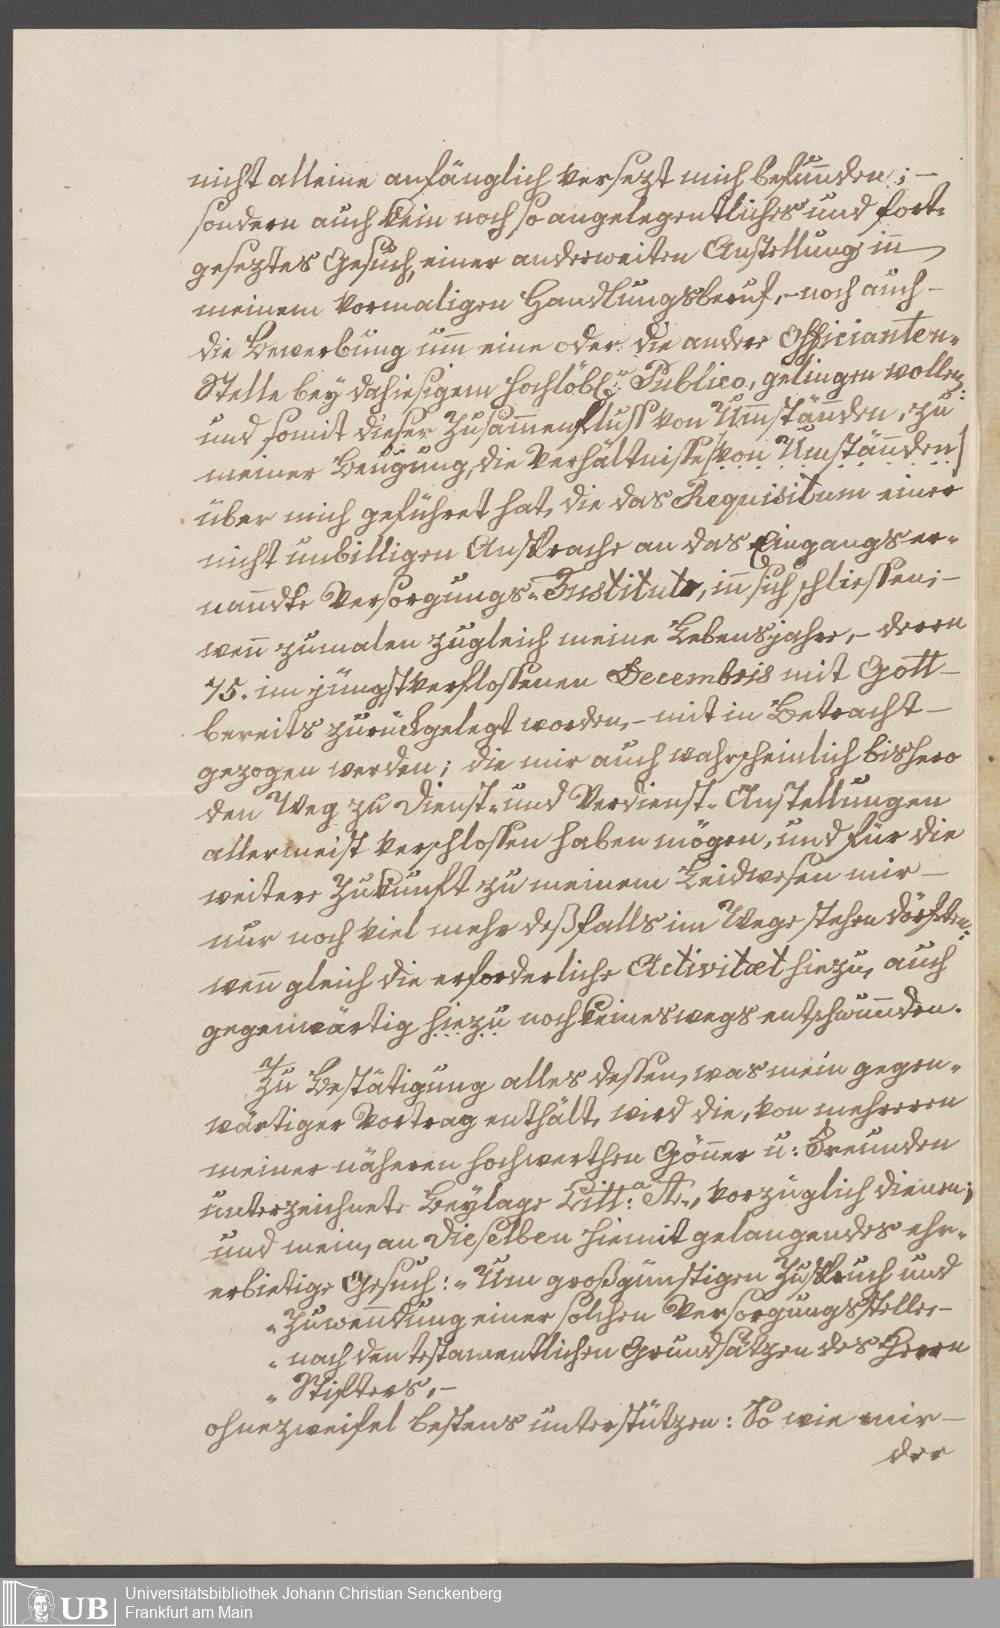 nicht alleine anfänglich versezt mich befunden; –
sondern auch kein noch so angelegentliches und fort-
geseztes Gesuch, einer anderweiten Anstellung in
meinem vormaligen Handlungsberuf, – noch auch –
die Bewerbung um eine oder die andere Officianten-
Stelle bey dahiesigem Hochlöbl. Publico, gelingen wollen:
und somit dieser Zusammenfluss von Umständen, zu
meiner Beugung, die Verhältnisse (von Umständen)
über mich geführet hat, die das Requisitum einer
nicht unbilligen Ansprache an das Eingangs er-
nandte Versorgungs-Institut, in sich schliessen; –
wenn zumalen zugleich meine Lebensjahre, – deren
75. im jüngstverflossenen Decembris mit Gott –
bereits zurückgelegt worden, – mit in Betracht –
gezogen werden; die mir auch wahrscheinlich bishero
den Weg zu Dienst- und Verdienst-Anstellungen
allermeist verschlossen haben mögen, und für die
weitere Zukunft zu meinem Leidwesen mir –
nur noch viel mehr deßfalls im Wege stehen dörften,
wenn gleich die erforderliche Activitæt hiezu, auch
gegenwärtig hiezu noch keineswegs entschwunden.
Zu Bestätigung alles dessen, was mein gegen-
wärtiger Vortrag enthält, wird die, von mehreren
meiner näheren hochwerthen Gönner u: Freunden
unterzeichnete Beylage Litt:a A., vorzüglich dienen;
und mein, an Dieselben hiemit gelangendes ehr-
erbietige Gesuch: „Um großgünstigen Zuspruch und
„Zuwendung einer solchen Versorgungsstelle –
„nach den testamentlichen Grundsätzen des Herrn
„Stifters, –
ohnezweifel bestens unterstützen: So wie mir –
der
UB Universitätsbibliothek Johann Christian Senckenberg
Frankfurt am Main